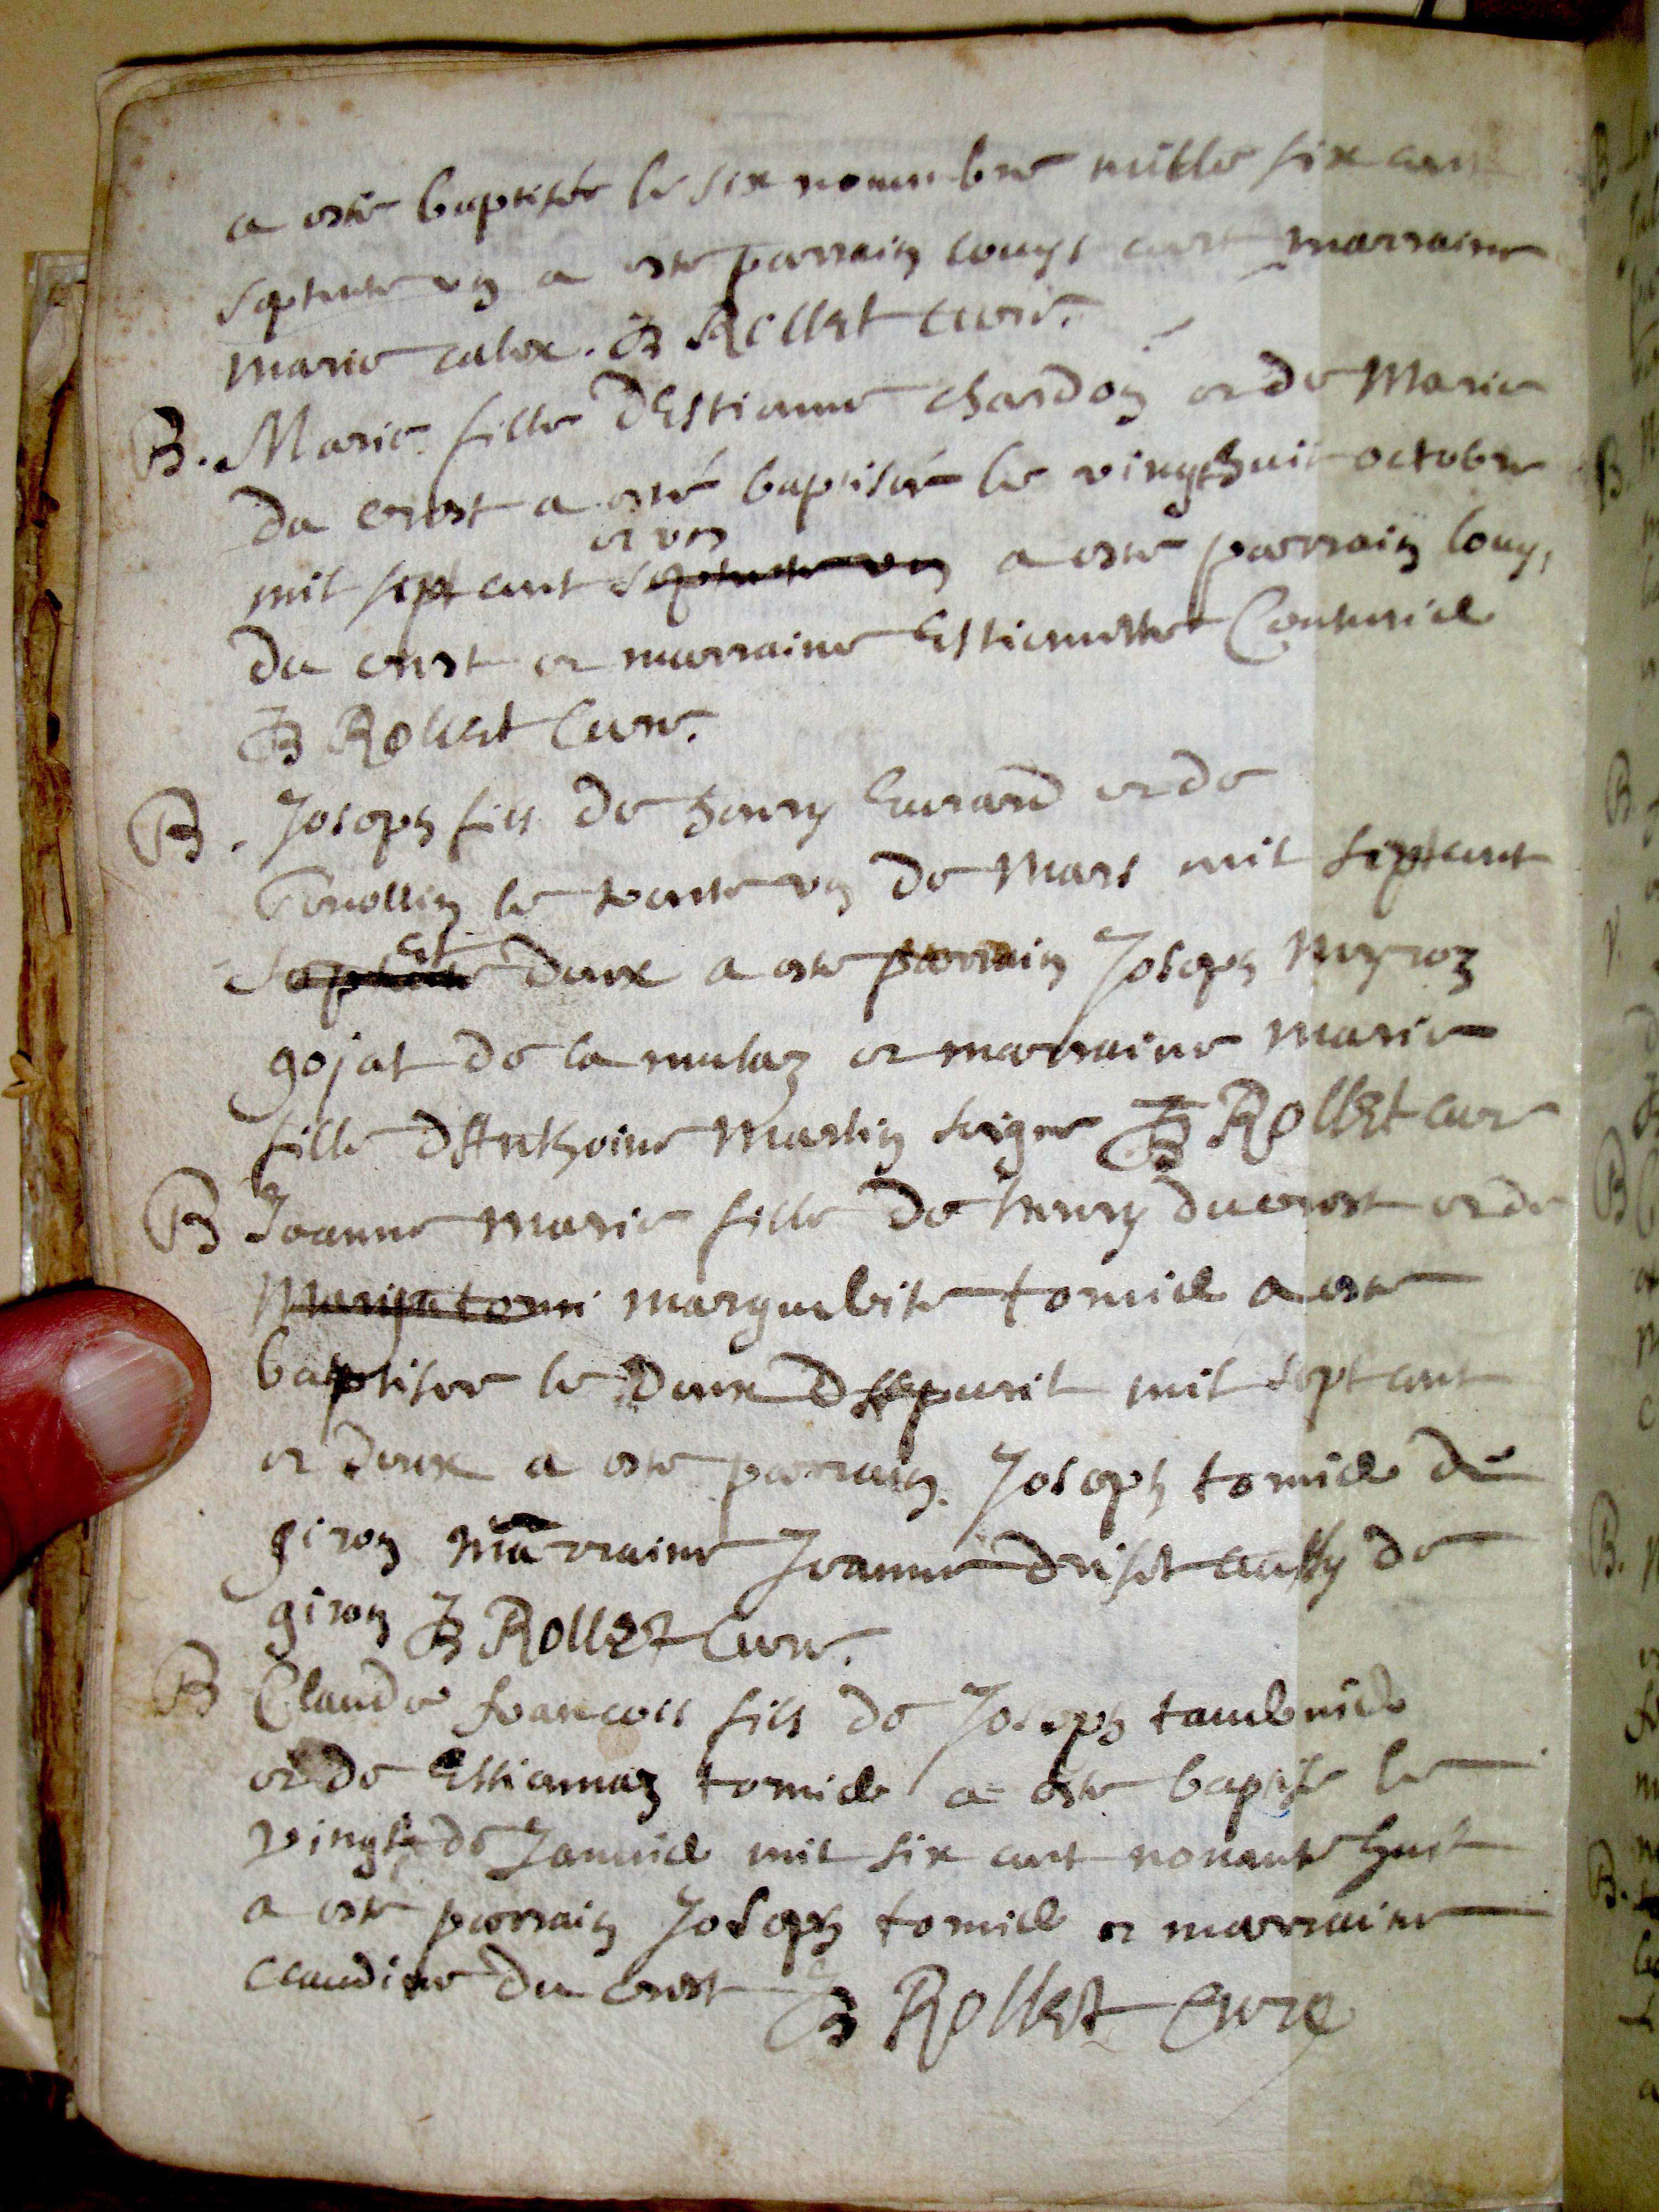 a esté baptisée le six nouembre mille six cent
septente vng a este parrain louys curt marraine
marie calex. JB Rollet curé.
B. Marie fille dEstienne chardon et de Marie
du crest a esté baptisée le vingthuit octobre
et vng
mil sept cent septente vng a este parrain louys
du crest et marraine Estiennette Conturie
JB Rollet Curé.
B. Joseph fils de henry Eurard et de
le trente vng de Mars mil sept cent
et
septente deux a este parrain Joseph
gojat de la mulaz et marraine marie
fille dAnthoine Martin JB Rollet curé
B Jeanne Marie fille de henry ducrest et de
Mariye tomi marguerite tomile a este
baptisee le deux dapuril mil sept cent
et deux a este parrain Joseph tomile de
giron marraine Jeanne aussy de
giron JB Rollet Curé.
B Claude francois fils de Joseph
et de Estiennaz tomile a este baptisé le
vingt de Januie mil six cent nonante huit
a este parrain Joseph tomile et marraine
claudine du crest JB Rollet Curé